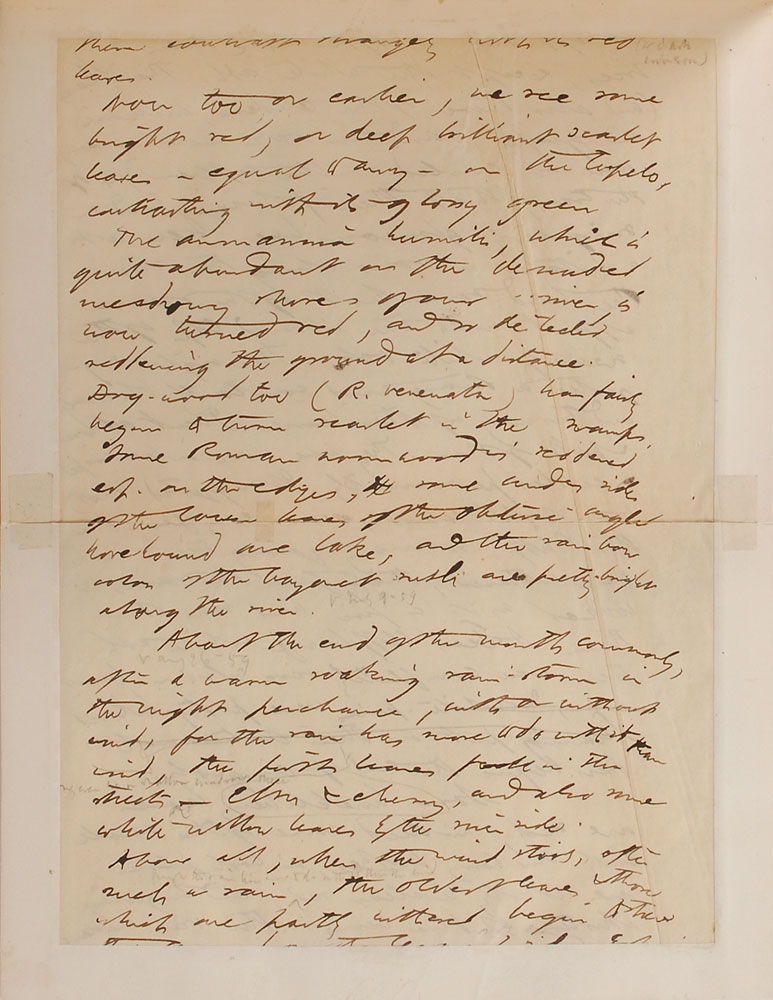 them contrast strangely with its red
leaves.
Now too, or earlier, we see some
bright red, or deep brilliant scarlet
leaves – equal to any – on the tupelo,
contrasting with its glossy green
The ammannia humilis, which is
quite abundant on the denuded
meadowy shores of our river, is
now turned red, and so detected
reddening the ground at a distance.
Dog-wood too (R. venenata) has fairly
begun to turn scarlet in the swamps.
Some Roman wormwood is reddened
esp. on the edges, some under sides
of the lower leaves of the obtuse angled
horehound are lake, and the rainbow
colors of the bayonet rush are pretty bright
along the river.
v July 9-59
About the end of the month commonly,
v aug -59
after a warm soaking rain-storm in
the night perchance, with or without
wind, for the rain has more to do with it than
wind, the first leaves fall in the
streets – Elms & cherry, and also some
white willow leaves by the river side.
Above all, when the wind stirs, after
such a rain, the oldest leaves & those
which are partly withered begin to